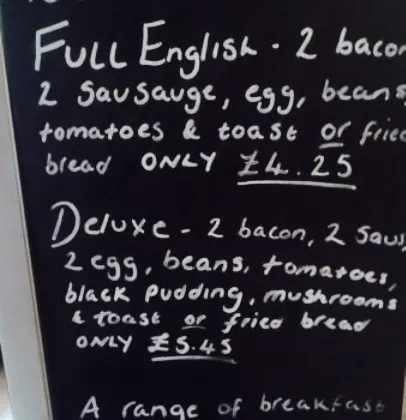 FULL ENGLISH - 2 bacon
2 Sausauge, egg, beans
tomatoes & toast or fried
bread ONLY £4.25
Deluxe - 2 bacon, 2 Saus
2 egg, beans, tomatoes,
black Pudding, mushrooms
& toast or fried bread
ONLY £5.45
A range of breakfast